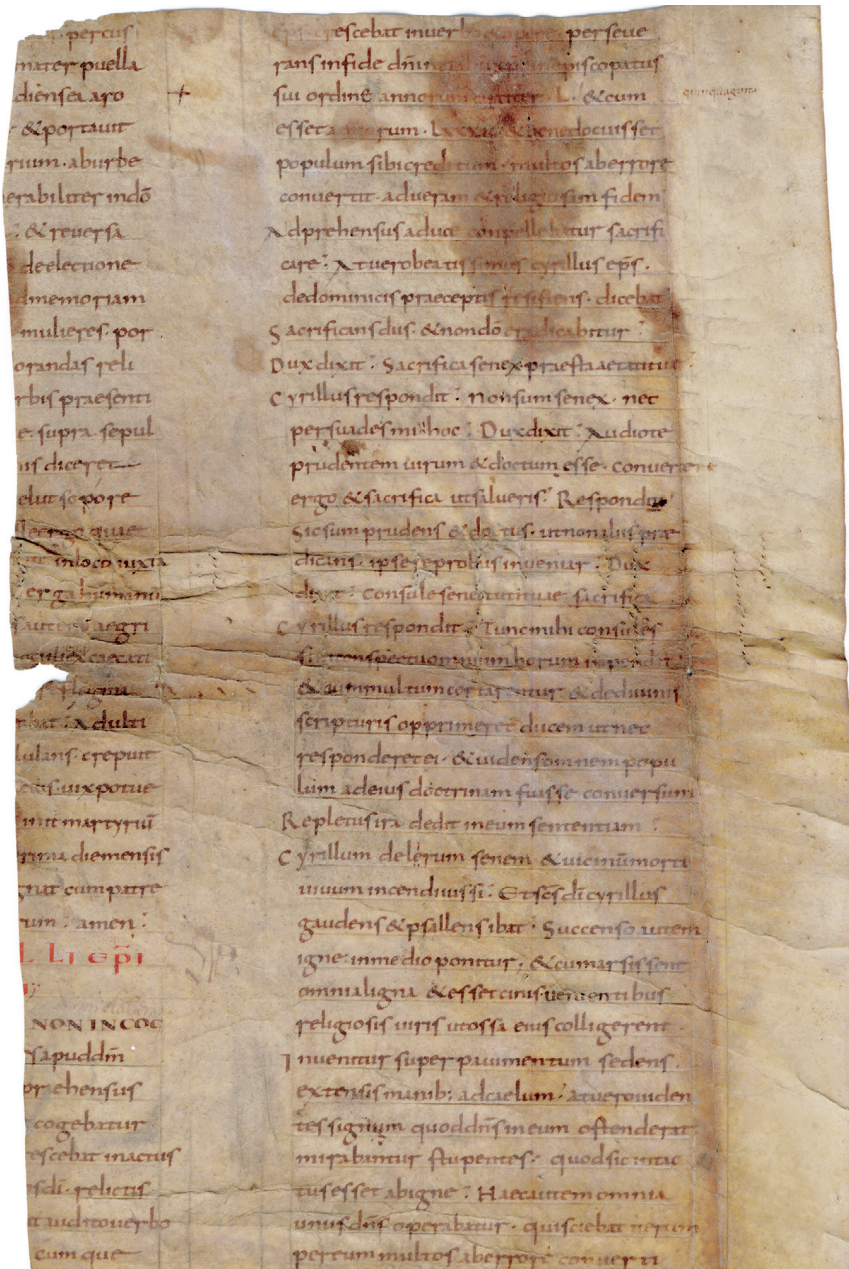 percus
mater puella
diensearo
&portauit
rium · aburbe
erabiliter indō
· &reuersa
deelectione
dmemoriam
mulieres · por
orandas reli
rbis praesenti
e · supra sepul
us diceret
elutsopore
quae
inloco iuxta
erga humanu
aegri
caecati
adulti
ulans · crepuit
uixpotue
martyriū
diemensis
cumpatre
rum : amen :
LLI EP̄I
NON IN COC
sapuddn̄m
prehensus
cogebatur
escebat inactus
sdi · relictis
auditouerbo
cumque
rescebat inuerbo perseue
rans infide dn̄i episcopatus
sui ordine annorum L · &cum
quinquaginta
esset &benedocuisset
populum sibicreditum · multos aberrore
conuertit · adueram &religiosam fidem
Adprehensus aduce conpellebatur sacrifi
care : Atuerobeatissimus cyrillus ep̄s ·
dedominicis praeceptis resistens · dicebat
Sacrificansdus · &nondō eradicabitur :
Dux dixit : Sacrifica senex praestaaetatituę
Cyrillus respondit : Nonsum senex · nec
persuades mihoc : Duxdixit : Audiote
prudentem uirum &doctum esse · conuertere
ergo &sacrifica utsalueris : Respondit
Sicsum prudens &doctus · utnonaliis prae
dicans · ipse reprobus inueniar : Dux
dixit : Consule senectutituae sacrifica
Cyrillus respondit · Tuncmihi consules
siinconspectuomnium horum
&cummultum certarentur &dediuinis
scripturis opprimeret ducem utnec
responderetei · &uidensomnem popu
lum adeius doctrinam fuisse conuersum
Repletusira dedit ineum sententiam :
Cyrillum delerum senem &uicinūmorti
uiuum incendiiussi : Etsc̄s di cyrillus
gaudens &psallens ibat · Succenso autem
igne · inmedio ponitur · &cumarsissent
omnialigna &esset cinis uenientibus
religiosis uiris utossa eius colligerent ·
Inuenitur super pauimentum sedens ·
extensis manib; adcaelum · atuerouiden
tes signum quoddn̄s ineum ostenderat
mirabantur stupentes · quodsic intac
tus esset abigne : Haecautem omnia
unus dn̄s operabatur · quisciebat iterum
pereum multos aberrore conuerti